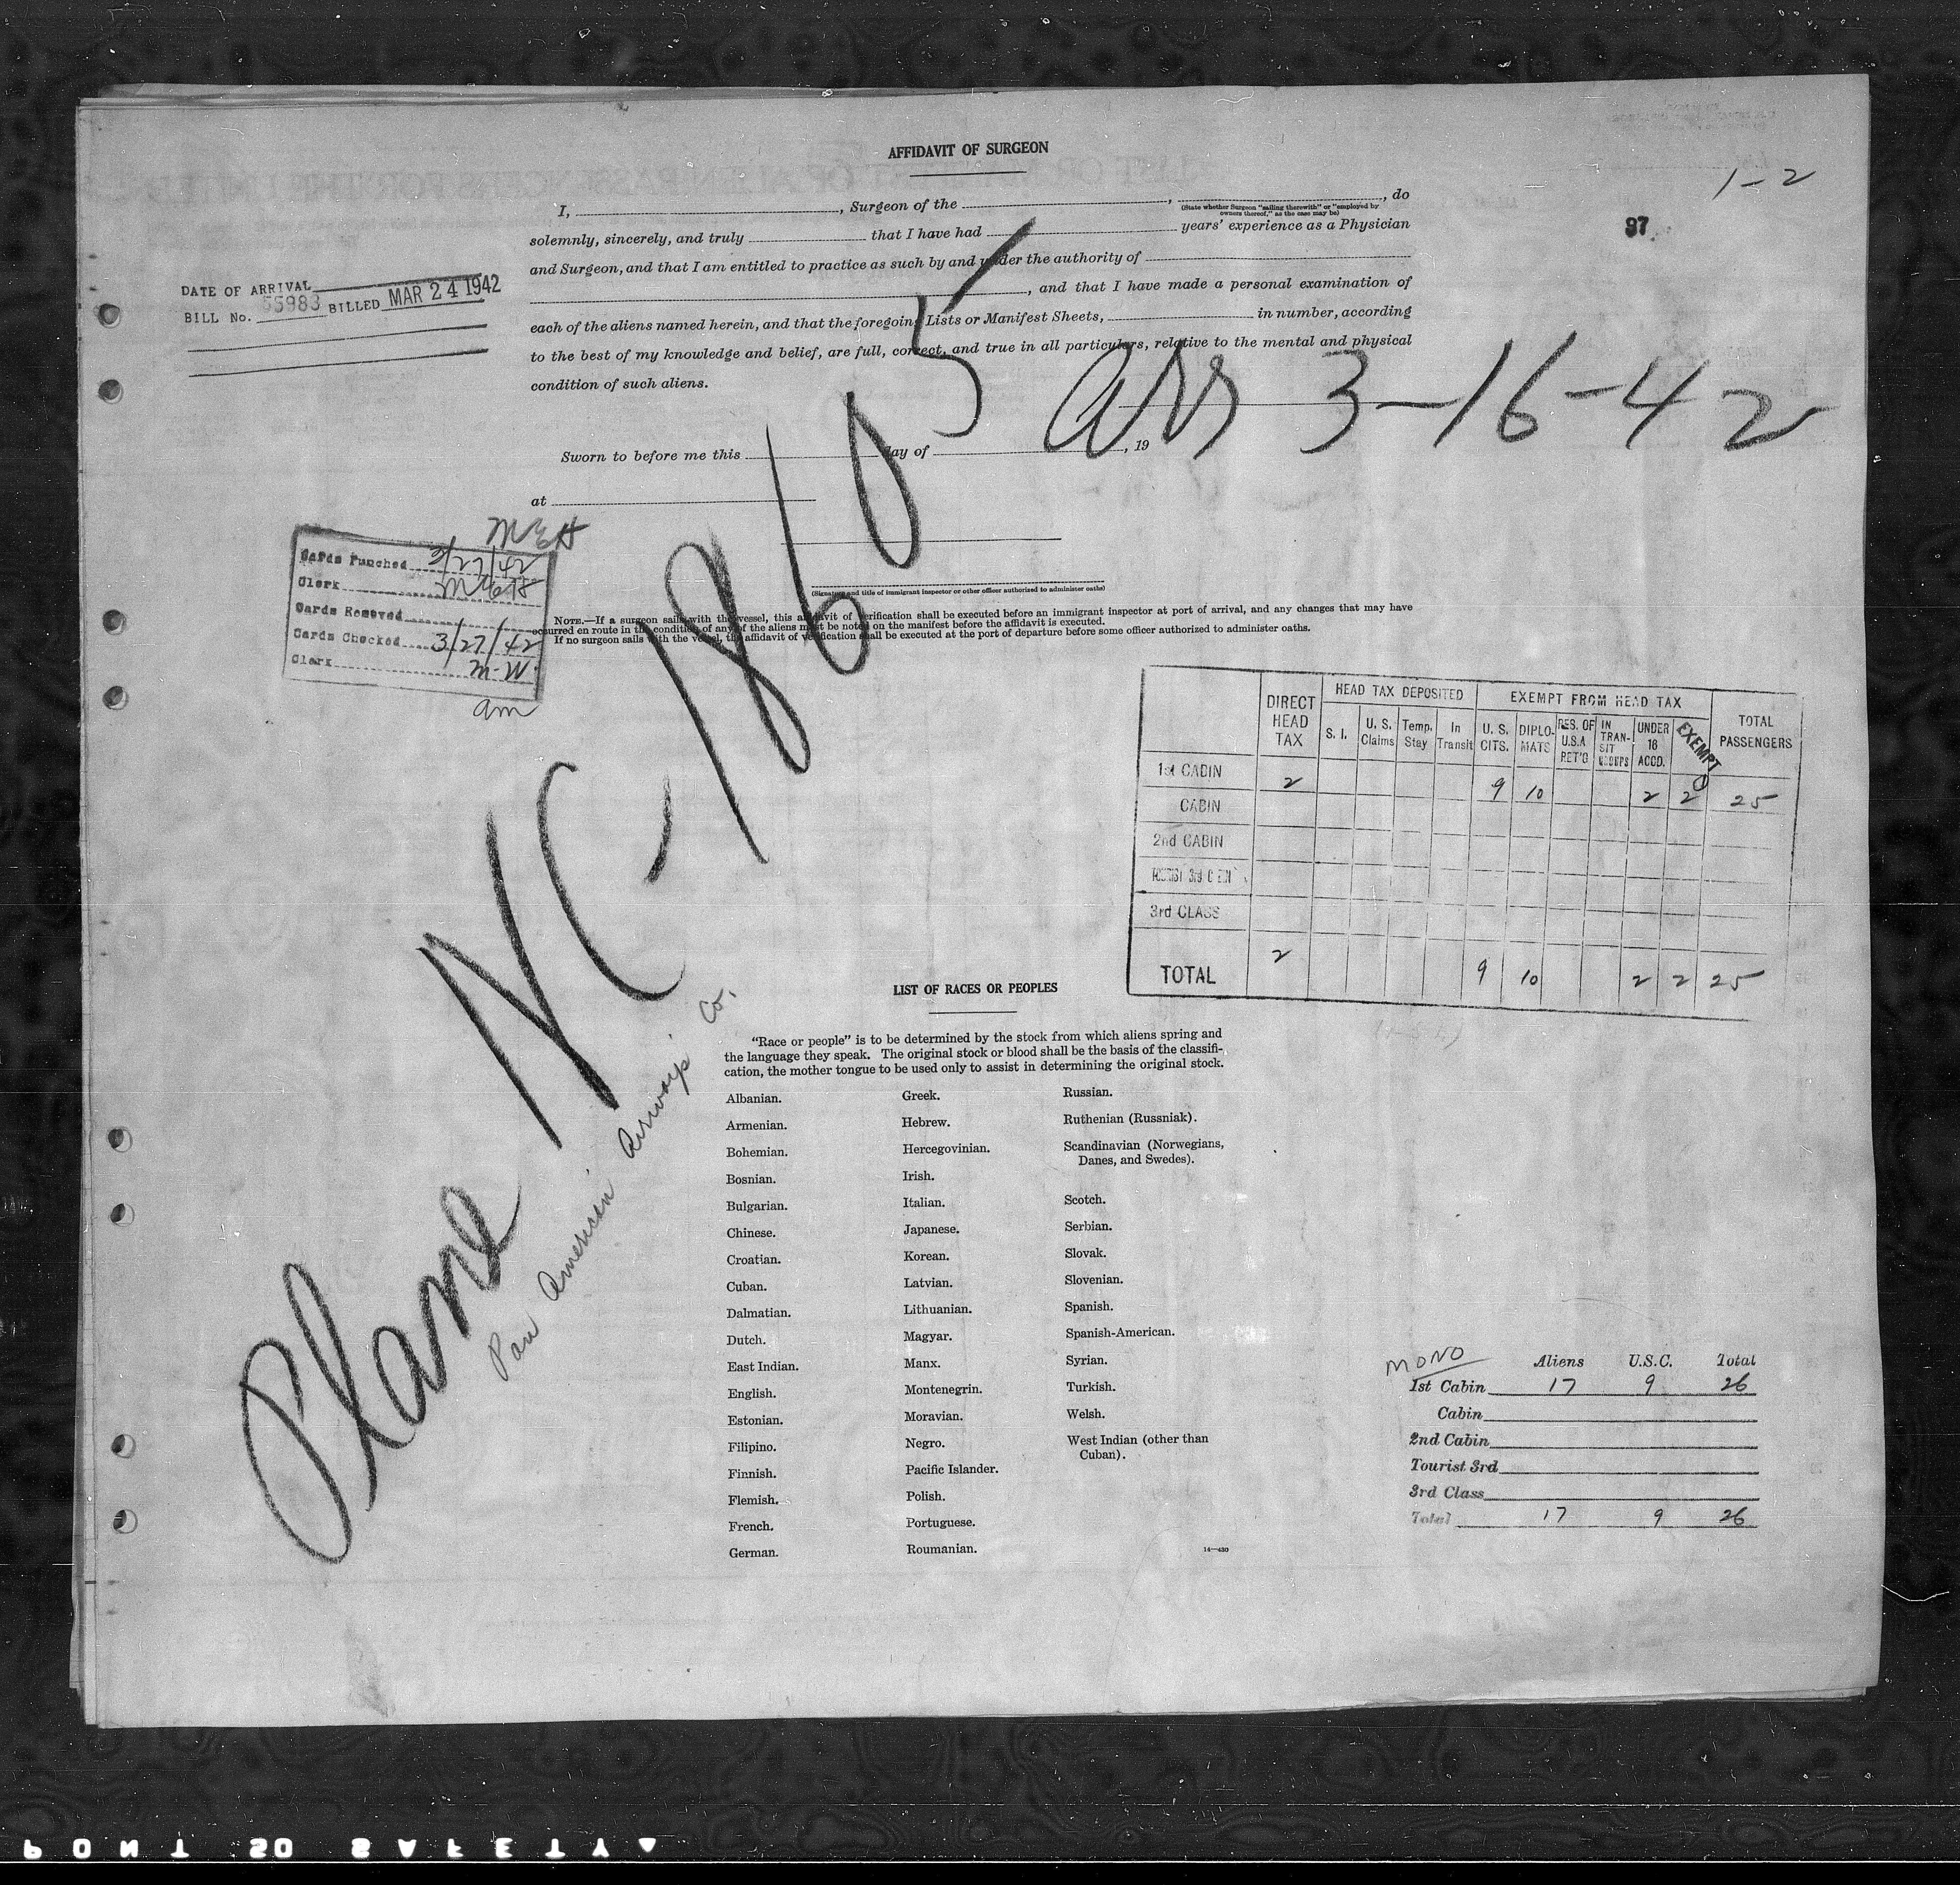 AFFIDAVIT OF SURGEON
1-2
97
I, , Surgeon of the , , do
(State whether Surgeon "sailing therewith" or "employed by owners thereof," as the case may be)
solemnly, sincerely, and truly that I have had years' experience as a Physician
and Surgeon, and that I am entitled to practice as such by and under the authority of
, and that I have made a personal examination of
each of the aliens named herein, and that the foregoing Lists or Manifest Sheets, in number, according
to the best of my knowledge and belief, are full, correct, and true in all particulars, relative to the mental and physical
condition of such aliens.
DATE OF ARRIVAL
BILL No. 55983 BILLED MAR 24 1942
Arr 3-16-42
Sworn to before me this day of , 19
at
(Signature and title of immigrant inspector or other officer authorized to administer oaths)
NOTE.—If a surgeon sails with the vessel, this affidavit of verification shall be executed before an immigrant inspector at port of arrival, and any changes that may have
occurred en route in the condition of any of the aliens must be noted on the manifest before the affidavit is executed.
If no surgeon sails with the vessel, the affidavit of verification shall be executed at the port of departure before some officer authorized to administer oaths.
Cards Punched 3/27/42
Clerk
Cards Removed
Cards Checked 3/27/42
Clerk M-W.
am
Plane NC-18605
Pan American Airways Co.
DIRECT HEAD TAX HEAD TAX DEPOSITED EXEMPT FROM HEAD TAX TOTAL PASSENGERS
S. I. U. S. Claims Temp. Stay In Transit U. S. CITS. DIPLO-MATS RES. OF U.S.A RET'G IN TRAN-SIT GROUPS UNDER 16 ACCD. EXEMPT
1st CABIN 2 9 10 2 2 25
CABIN
2nd CABIN
TOURIST 3rd CABIN
3rd CLASS
TOTAL 2 9 10 2 2 25
LIST OF RACES OR PEOPLES
"Race or people" is to be determined by the stock from which aliens spring and
the language they speak. The original stock or blood shall be the basis of the classifi-
cation, the mother tongue to be used only to assist in determining the original stock.
Albanian. Greek. Russian.
Armenian. Hebrew. Ruthenian (Russniak).
Bohemian. Hercegovinian. Scandinavian (Norwegians, Danes, and Swedes).
Bosnian. Irish.
Bulgarian. Italian. Scotch.
Chinese. Japanese. Serbian.
Croatian. Korean. Slovak.
Cuban. Latvian. Slovenian.
Dalmatian. Lithuanian. Spanish.
Dutch. Magyar. Spanish-American.
East Indian. Manx. Syrian.
English. Montenegrin. Turkish.
Estonian. Moravian. Welsh.
Filipino. Negro. West Indian (other than Cuban).
Finnish. Pacific Islander.
Flemish. Polish.
French. Portuguese.
German. Roumanian.
14—430
MONO Aliens U.S.C. Total
1st Cabin 17 9 26
Cabin
2nd Cabin
Tourist 3rd
3rd Class
Total 17 9 26